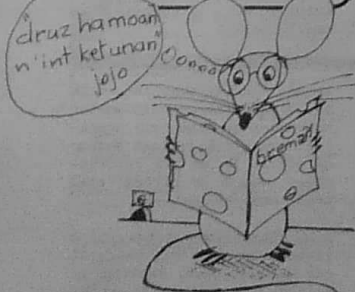 "druz ha moan
n'int ket unan"
jojo
bremañ